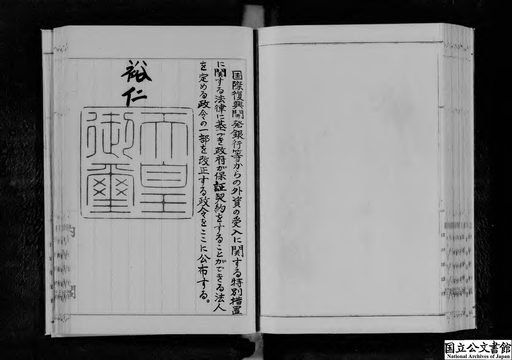 国際復興開発銀行等からの外資の受入に関する特別措置
に関する法律に基づき政府が保証契約をすることができる法人
を定める政令の一部を改正する政令をここに公布する。
裕仁
天皇
御璽
国立公文書館
National Archives of Japan